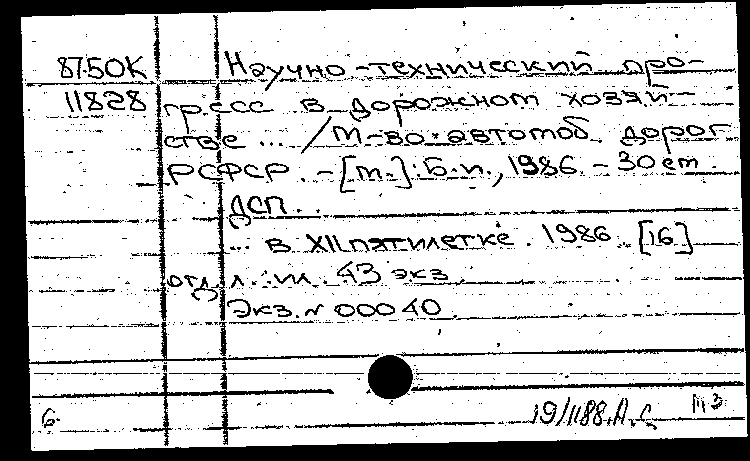 87.50К Научно-технический про-
11828 гресс в дорожном хозяй-
стве ... / М-во автомоб. дорог
РСФСР. - [М.]: Б.и., 1986 - 30 см.
ДСП.
... в XII пятилетке. 1986. [16]
отд. л. ил. 43 экз.
Экз. № 00040.
6 19/1188. А.С.